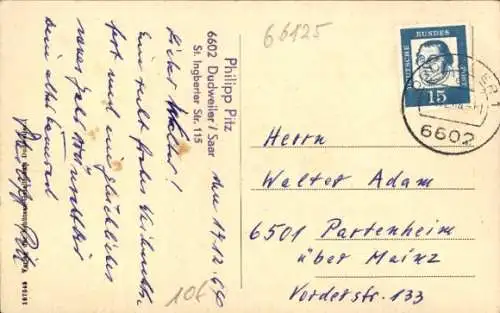 66125
Philipp Pitz
6602 Dudweiler / Saar
St. Ingberter Str. 115
den 17.12.64
Lieber Walter!
Ein recht frohes Weihnachts-
fest und ein glückliches
neues Jahr wünscht dir
dein alter Kamerad
Philipp Pitz
DEUTSCHE BUNDESPOST
15
6602
Herrn
Walter Adam
6501 Partenheim
über Mainz
Vorderstr. 133
106